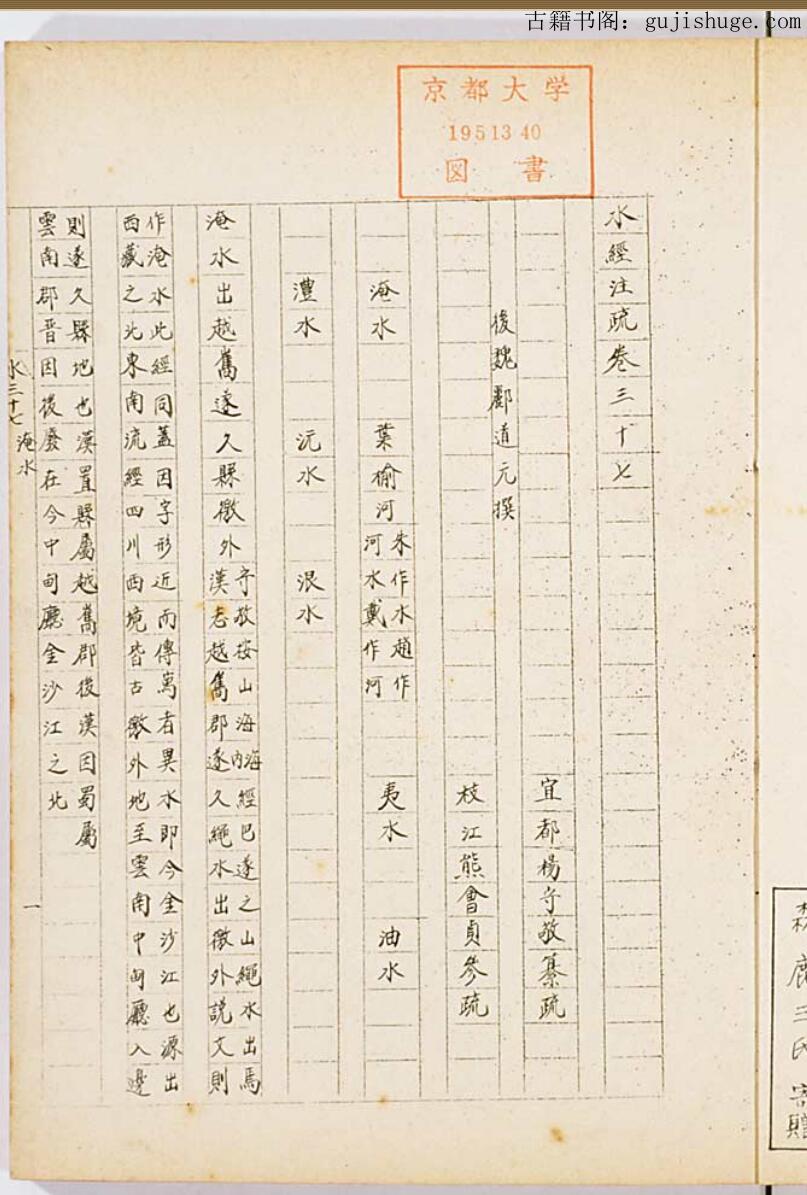 古籍书阁：gujishuge.com
京都大学
1951340
図書
水經注疏卷三十七
後魏酈道元撰
宜都楊守敬纂疏
枝江熊會貞參疏
淹水 葉榆河 朱作水趙作
河水戴作河
夷水 油水
澧水 沅水 泿水
淹水出越嶲遂久縣徼外 守敬按山海海内經巴遂之山繩水出焉
漢志越嶲郡遂久繩水出徼外說文則
作淹水此經同蓋因字形近而傳寫者異水即今金沙江也源出
西藏之北東南流經四川西境皆古徼外地至雲南中甸廳入邊
則遂久縣地也漢置縣屬越嶲郡後漢因蜀屬
雲南郡晉因後廢在今中甸廳金沙江之北
水三十七 淹水 一
森鹿三氏寄贈